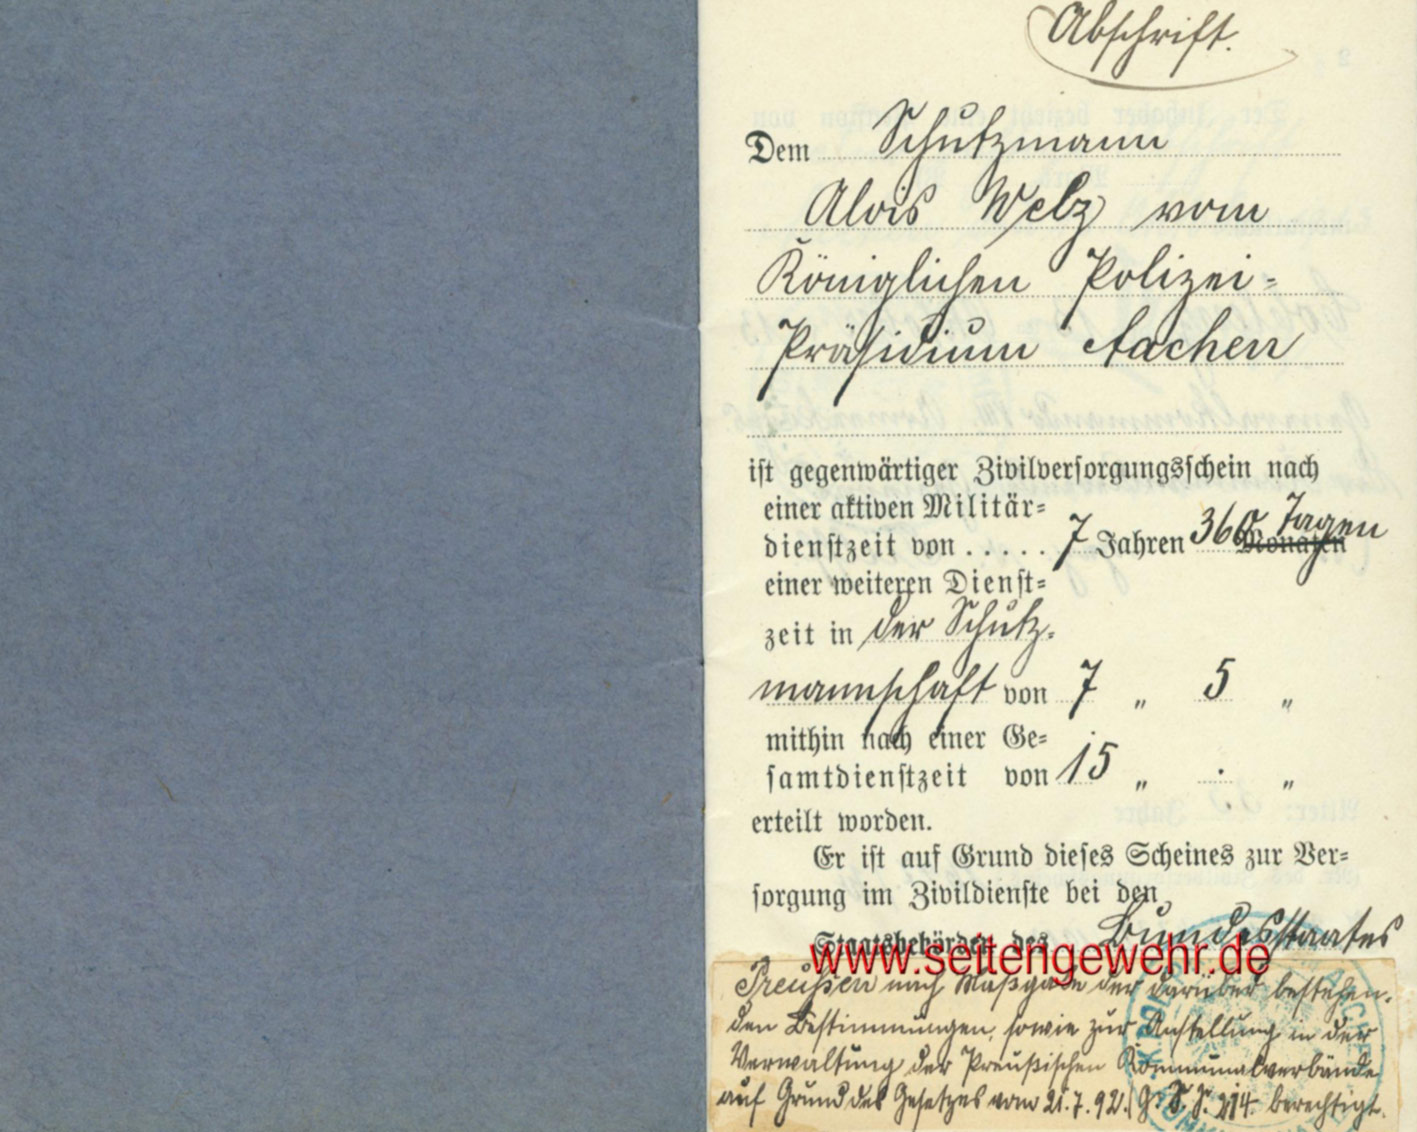 Abschrift.
Dem Schutzmann
Alois Welz vom
Königlichen Polizei-
Präsidium Aachen
ist gegenwärtiger Zivilversorgungsschein nach
einer aktiven Militär-
dienstzeit von ..... 7 Jahren 360 Tagen Monaten
einer weiteren Dienst-
zeit in der Schutz-
mannschaft von 7 " 5 "
mithin nach einer Ge-
samtdienstzeit von 15 " . "
erteilt worden.
Er ist auf Grund dieses Scheines zur Ver-
sorgung im Zivildienste bei den
Staatsbehörden des Bundesstaates
www.seitengewehr.de
Preußen nach Maßgabe der darüber bestehen-
den Bestimmungen, sowie zur Anstellung in der
Verwaltung der Preußischen Kommunalverbände
auf Grund des Gesetzes vom 21.7.92. G. S. S. 214. berechtigt.